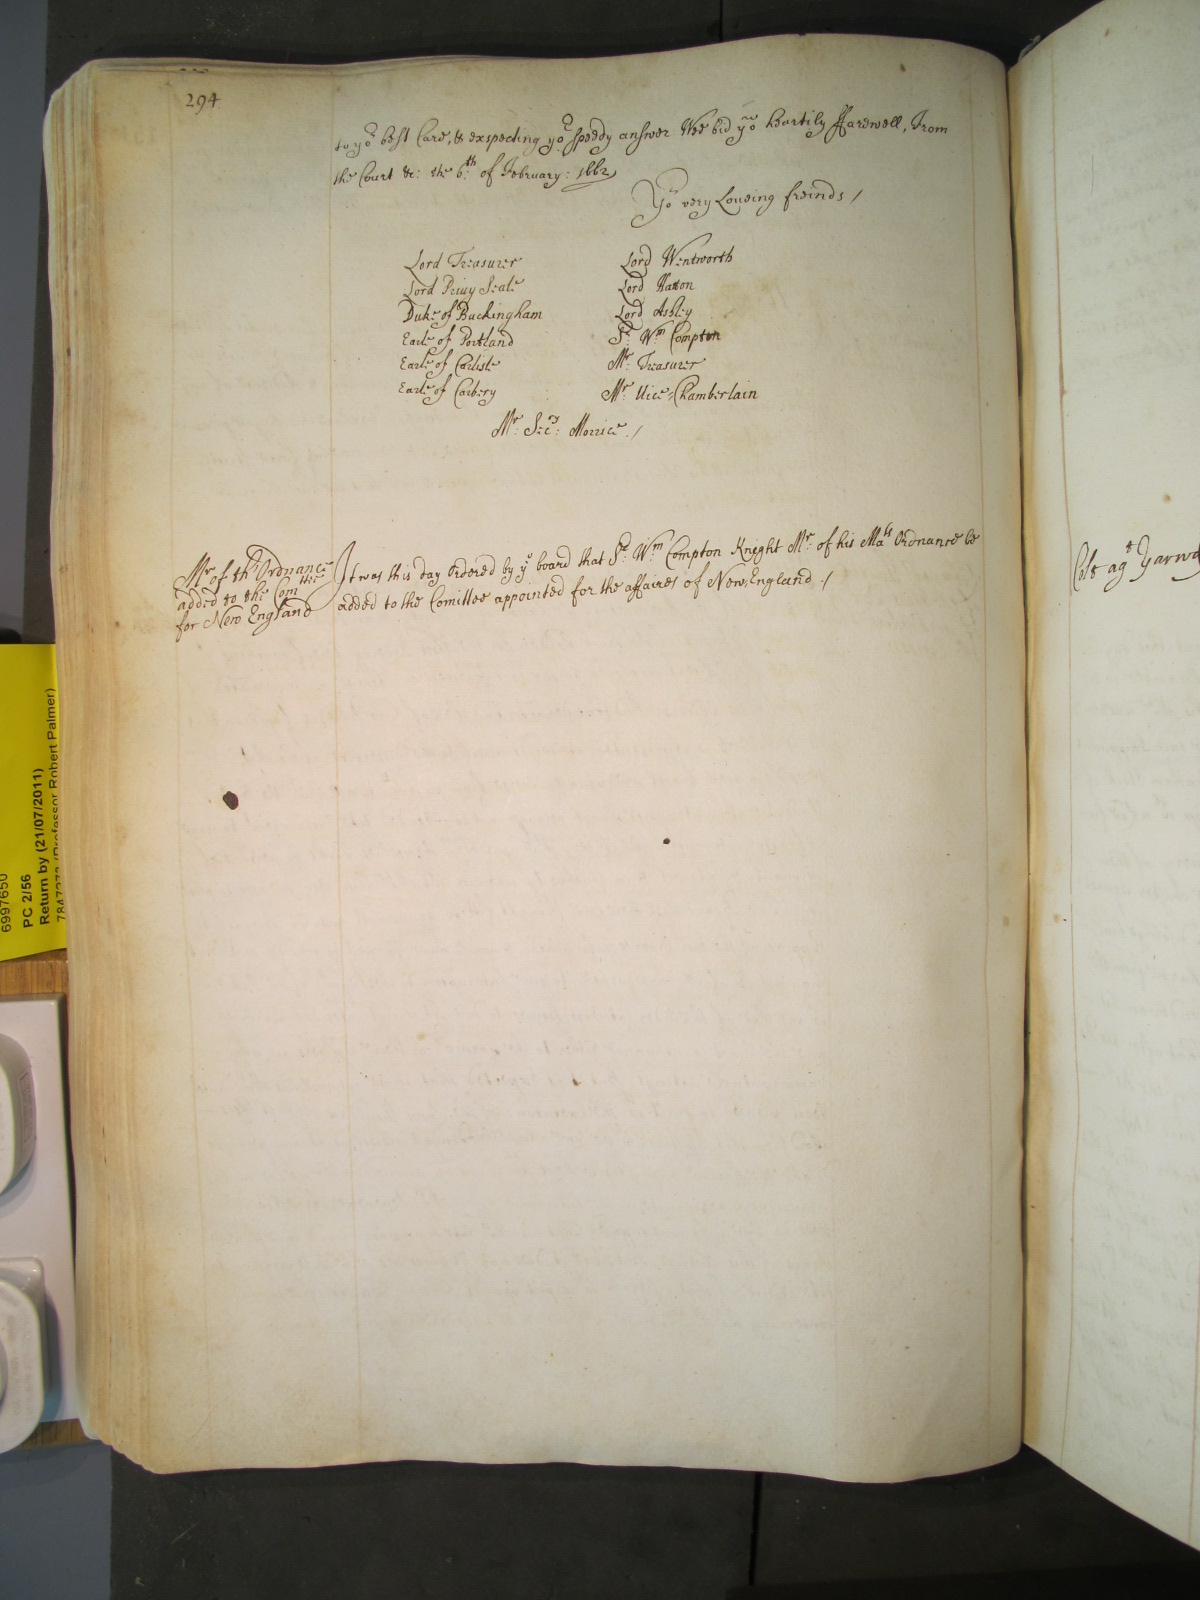 294
to yor best Care, & exspecting yor speedy answer Wee bid you heartily ffarewell, From
the Court &c: the 6th of February: 1662
Yor very Loveing freinds /
Lord Treasurer
Lord Privy Seale
Duke of Buckingham
Earle of Portland
Earle of Carlisle
Earle of Carbery
Lord Wentworth
Lord Hatton
Lord Ashley
Sr Wm Compton
Mr Treasurer
Mr Vice-Chamberlain
Mr: Secry: Morrice. /
Mr of the Ordnance
added to the Comttee
for New England
It was this day Ordered by ye board that Sr Wm Compton Knight Mr of his Mats Ordnance be
added to the Comittee appointed for the affaires of New, England. /
agt Yarwo
6997650
PC 2/56
Return by (21/07/2011)
(Professor Robert Palmer)